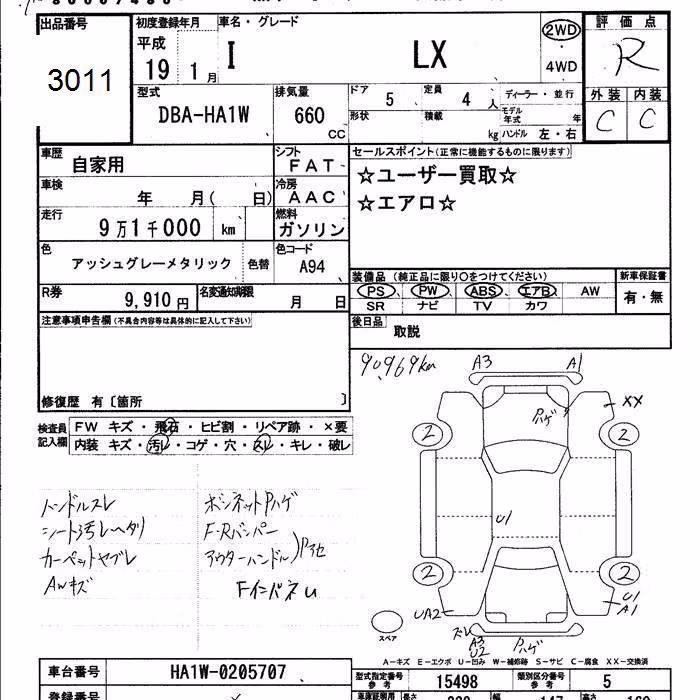 出品番号
3011
初度登録年月
平成
19 1月
車名・グレード
I LX
2WD
・
4WD
評価点
R
外装 内装
C C
型式
DBA-HA1W
排気量
660
cc
ドア
5
定員
4 人
ディーラー・並行
形状
積載
kg
モデル年式
年
ハンドル 左・右
車歴
自家用
シフト
FAT
車検
年 月( 日)
冷房
AAC
走行
9万1千000 km
燃料
ガソリン
色
アッシュグレーメタリック
色替
色コード
A94
R券
9,910円
名変通知期限
月 日
セールスポイント(正常に機能するものに限ります)
☆ユーザー買取☆
☆エアロ☆
装備品(純正品に限り○をつけてください)
PS PW ABS エアB AW
SR ナビ TV カワ
新車保証書
有・無
後日品
取説
注意事項申告欄(不具合内容等は具体的に記入して下さい)
修復歴 有〔箇所 〕
検査員記入欄
FW キズ・飛石・ヒビ割・リペア跡・×要
内装 キズ・汚レ・コゲ・穴・スレ・キレ・破レ
ハンドルスレ
シート汚レヘタリ
カーペットヤブレ
AWキズ
ボンネットPハゲ
F-Rバンパー
アウターハンドル)Pアセ
FインパネU
90,969km
A3 A1
Pハゲ
XX
2 2
U1
2 2
UA2
U1
A1
スペア
スレ
A3
U2
Pハゲ
A-キズ E-エクボ U-凹み W-補修跡 S-サビ C-腐食 XX-交換済
車台番号
HA1W-0205707
型式指定番号
参考
15498
類別区分番号
参考
5
登録番号